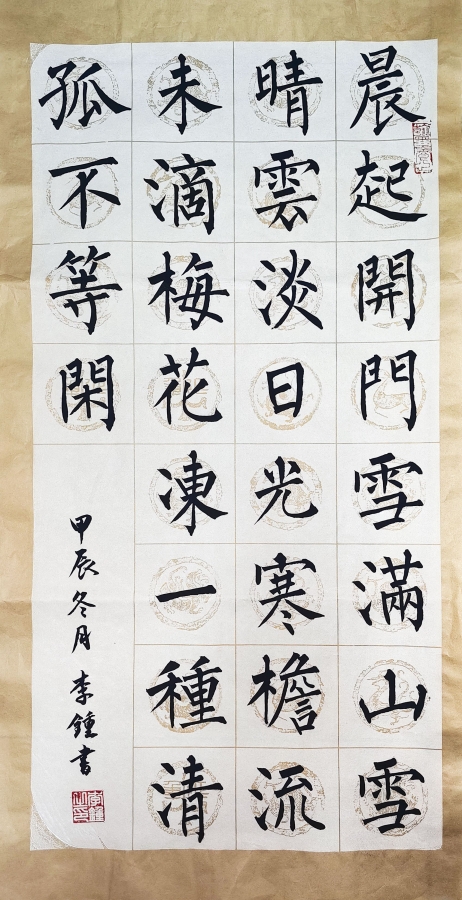 晨起開門雪滿山雪
晴雲淡日光寒檐流
未滴梅花凍一種清
孤不等閑
甲辰冬月李鍾書